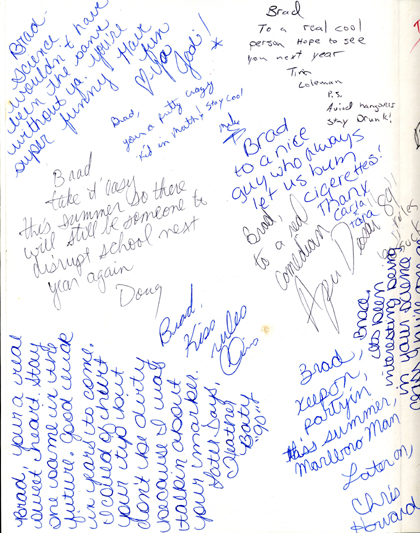 Brad
Science
wouldn't have
been the same
without ya. You're
super funny! Have
fun
♡ ya
Jodi!
Brad
To a real cool
person Hope to see
you next year
Tim
Coleman
P.S.
Avoid hangovers
Stay Drunk!
Brad,
your a pretty crazy
kid in math! Stay cool
Mike
Brad
to a nice
guy who always
let us bum
cigarettes!
Thanx
Carla
Tara
Brad
take it easy
this summer so there
will still be someone to
disrupt school next
year again
Doug
Brad,
to a real
comedian
Brad,
Kiss
rules
Brad, your a real
sweet heart. Stay
the same in the
future. Good luck
in years to come.
I died of hurt
your lip but
don't be dirty
because I was
talkin about
your marker.
Later Days,
Heather
Baty
"90"
Brad,
its been
interesting being
in your science
Brad,
keep on
partyin'
this summer,
Marlboro Man
Later on,
Chris
Howard